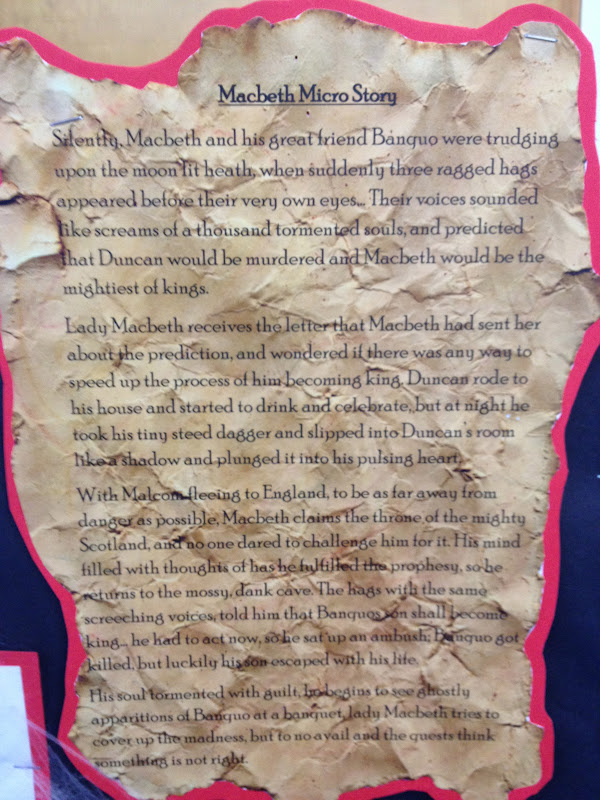 Macbeth Micro Story
Silently, Macbeth and his great friend Banquo were trudging
upon the moon lit heath, when suddenly three ragged hags
appeared before their very own eyes... Their voices sounded
like screams of a thousand tormented souls, and predicted
that Duncan would be murdered and Macbeth would be the
mightiest of kings.
Lady Macbeth receives the letter that Macbeth had sent her
about the prediction, and wondered if there was any way to
speed up the process of him becoming king. Duncan rode to
his house and started to drink and celebrate, but at night he
took his tiny steed dagger and slipped into Duncan's room
like a shadow and plunged it into his pulsing heart.
With Malcom fleeing to England, to be as far away from
danger as possible, Macbeth claims the throne of the mighty
Scotland, and no one dared to challenge him for it. His mind
filled with thoughts of has he fulfilled the prophesy, so he
returns to the mossy, dank cave. The hags with the same
screeching voices, told him that Banquos son shall become
king... he had to act now, so he sat up an ambush; Banquo got
killed, but luckily his son escaped with his life.
His soul tormented with guilt, he begins to see ghostly
apparitions of Banquo at a banquet, lady Macbeth tries to
cover up the madness, but to no avail and the quests think
something is not right.